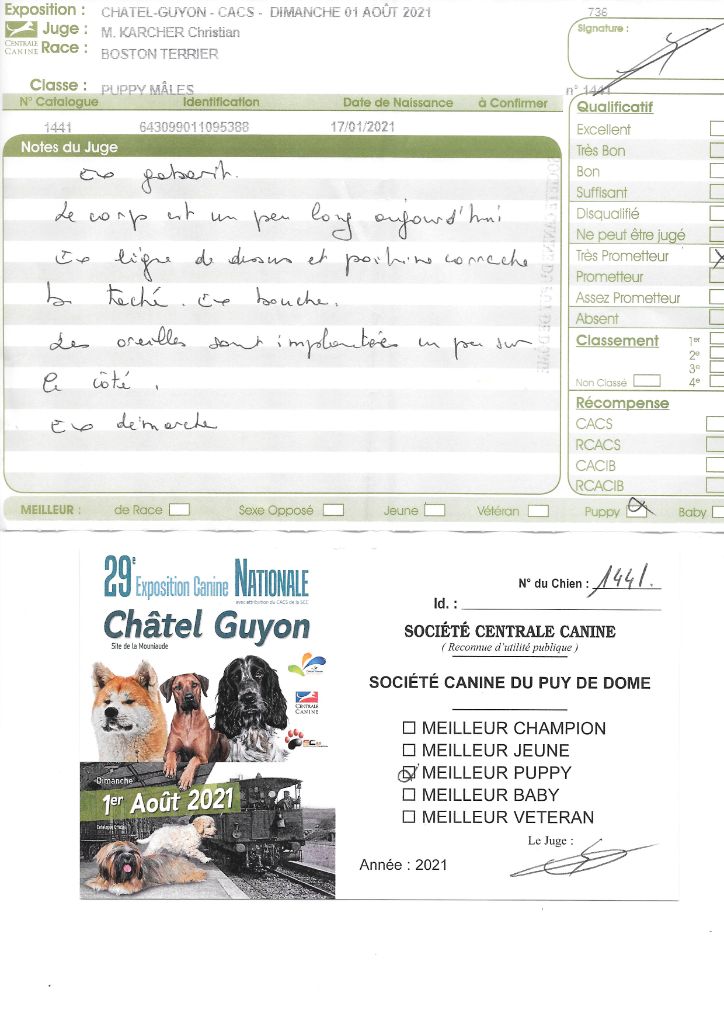 Exposition : CHATEL-GUYON - CACS - DIMANCHE 01 AOÛT 2021 736
Juge : M. KARCHER Christian
CENTRALE CANINE
Race : BOSTON TERRIER
Signature :
Classe : PUPPY MÂLES n° 1441
N° Catalogue Identification Date de Naissance à Confirmer
1441 643099011095388 17/01/2021
Notes du Juge
gabarit.
Le corp est un peu long aujourd'hui
ligne de dessus et poitrine correcte
b taché. bouche.
Les oreilles sont implantées un peu sur
le côté.
démarche
Qualificatif
Excellent
Très Bon
Bon
Suffisant
Disqualifié
Ne peut être jugé
Très Prometteur X
Prometteur
Assez Prometteur
Absent
Classement 1er
2e
3e
Non Classé 4e
Récompense
CACS
RCACS
CACIB
RCACIB
MEILLEUR : de Race Sexe Opposé Jeune Vétéran Puppy Baby
29e Exposition Canine NATIONALE
avec attribution du CACS de la SCC
Châtel Guyon
Site de la Mouniaude
CENTRALE CANINE
Dimanche
1er Août 2021
N° du Chien : 1441.
Id. :
SOCIÉTÉ CENTRALE CANINE
( Reconnue d'utilité publique )
SOCIÉTÉ CANINE DU PUY DE DOME
MEILLEUR CHAMPION
MEILLEUR JEUNE
MEILLEUR PUPPY
MEILLEUR BABY
MEILLEUR VETERAN
Le Juge :
Année : 2021